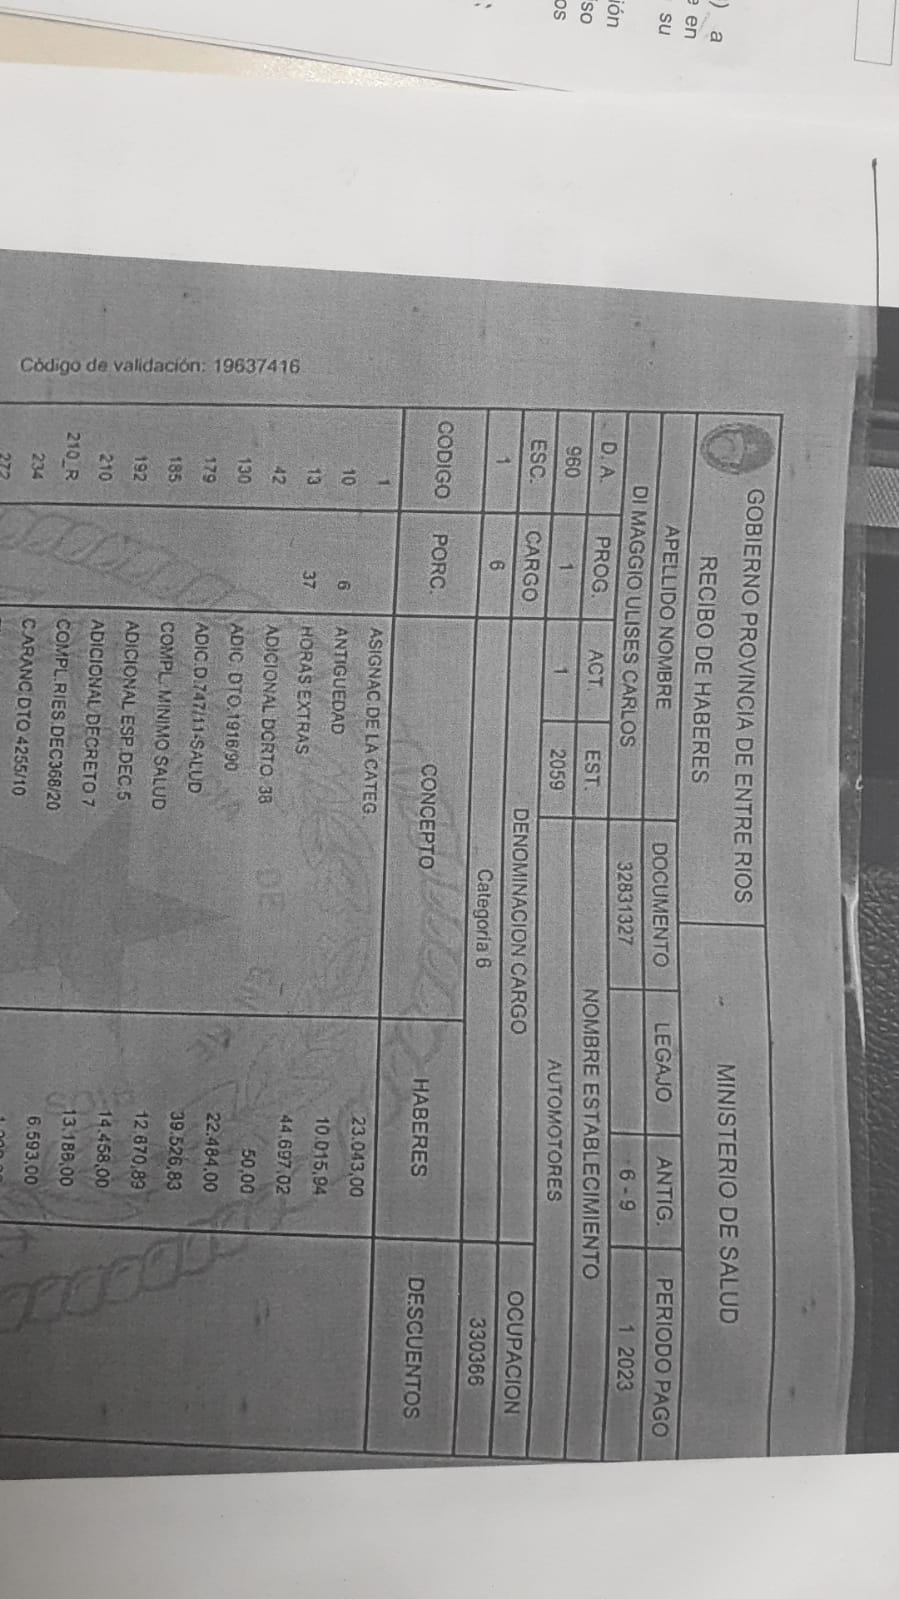 ) a
e en
su
ión
iso
os
GOBIERNO PROVINCIA DE ENTRE RIOS
RECIBO DE HABERES
MINISTERIO DE SALUD
APELLIDO NOMBRE DOCUMENTO LEGAJO ANTIG. PERIODO PAGO
DI MAGGIO ULISES CARLOS 32831327 6 - 9 1 2023
D. A. PROG. ACT. EST. NOMBRE ESTABLECIMIENTO
960 1 1 2059 AUTOMOTORES
ESC. CARGO DENOMINACION CARGO OCUPACION
1 6 Categoria 6 330366
CODIGO PORC. CONCEPTO HABERES DESCUENTOS
1 ASIGNAC.DE LA CATEG. 23.043,00
10 6 ANTIGUEDAD 10.015,94
13 37 HORAS EXTRAS 44.697,02
42 ADICIONAL DCRTO 38 50,00
130 ADIC. DTO.1916/90 22.484,00
179 ADIC.D.747/11-SALUD 39.526,83
185 COMPL. MINIMO SALUD 12.670,89
192 ADICIONAL ESP.DEC.5 14.458,00
210 ADICIONAL DECRETO 7 13.186,00
210_R COMPL.RIES.DEC368/20 6.593,00
234 C.ARANC DTO 4255/10
272
Código de validación: 19637416